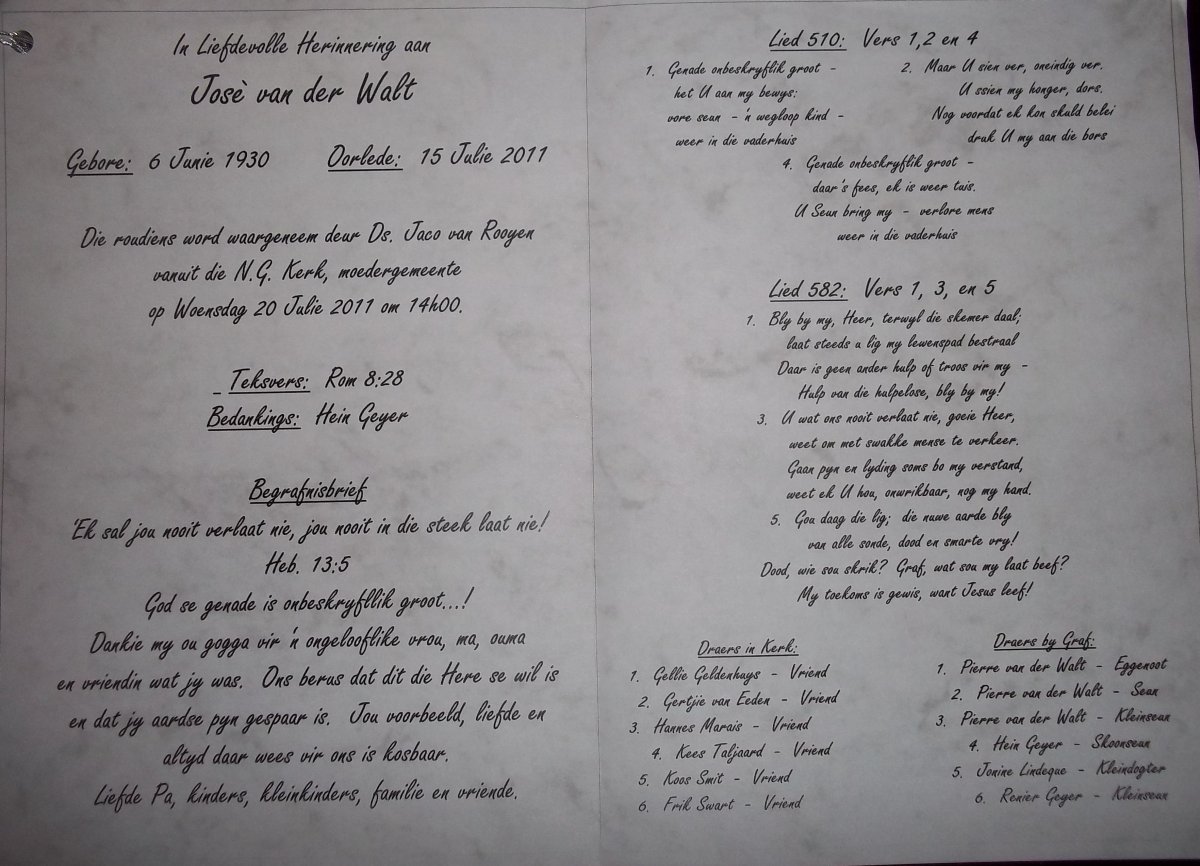 In Liefdevolle Herinnering aan
Josè van der Walt
Gebore: 6 Junie 1930 Oorlede: 15 Julie 2011
Die roudiens word waargeneem deur Ds. Jaco van Rooyen
vanuit die N.G. Kerk, moedergemeente
op Woensdag 20 Julie 2011 om 14h00.
Teksvers: Rom 8:28
Bedankings: Hein Geyer
Begrafnisbrief
'Ek sal jou nooit verlaat nie, jou nooit in die steek laat nie!
Heb. 13:5
God se genade is onbeskryfllik groot...!
Dankie my ou gogga vir 'n ongelooflike vrou, ma, ouma
en vriendin wat jy was. Ons berus dat dit die Here se wil is
en dat jy aardse pyn gespaar is. Jou voorbeeld, liefde en
altyd daar wees vir ons is kosbaar.
Liefde Pa, kinders, kleinkinders, familie en vriende.
Lied 510: Vers 1,2 en 4
1. Genade onbeskryflik groot -
het U aan my bewys:
vore seun - 'n wegloop kind -
weer in die vaderhuis
2. Maar U sien ver, oneindig ver.
U ssien my honger, dors.
Nog voordat ek kon skuld belei
druk U my aan die bors
4. Genade onbeskryflik groot -
daar's fees, ek is weer tuis.
U Seun bring my - verlore mens
weer in die vaderhuis
Lied 582: Vers 1, 3, en 5
1. Bly by my, Heer, terwyl die skemer daal;
laat steeds u lig my lewenspad bestraal
Daar is geen ander hulp of troos vir my -
Hulp van die hulpelose, bly by my!
3. U wat ons nooit verlaat nie, goeie Heer,
weet om met swakke mense te verkeer.
Gaan pyn en lyding soms bo my verstand,
weet ek U hou, onwrikbaar, nog my hand.
5. Gou daag die lig; die nuwe aarde bly
van alle sonde, dood en smarte vry!
Dood, wie sou skrik? Graf, wat sou my laat beef?
My toekoms is gewis, want Jesus leef!
Draers in Kerk:
1. Gellie Geldenhuys - Vriend
2. Gertjie van Eeden - Vriend
3. Hannes Marais - Vriend
4. Kees Taljaard - Vriend
5. Koos Smit - Vriend
6. Frik Swart - Vriend
Draers by Graf:
1. Pierre van der Walt - Eggenoot
2. Pierre van der Walt - Seun
3. Pierre van der Walt - Kleinseun
4. Hein Geyer - Skoonseun
5. Jonine Lindeque - Kleindogter
6. Renier Geyer - Kleinseun